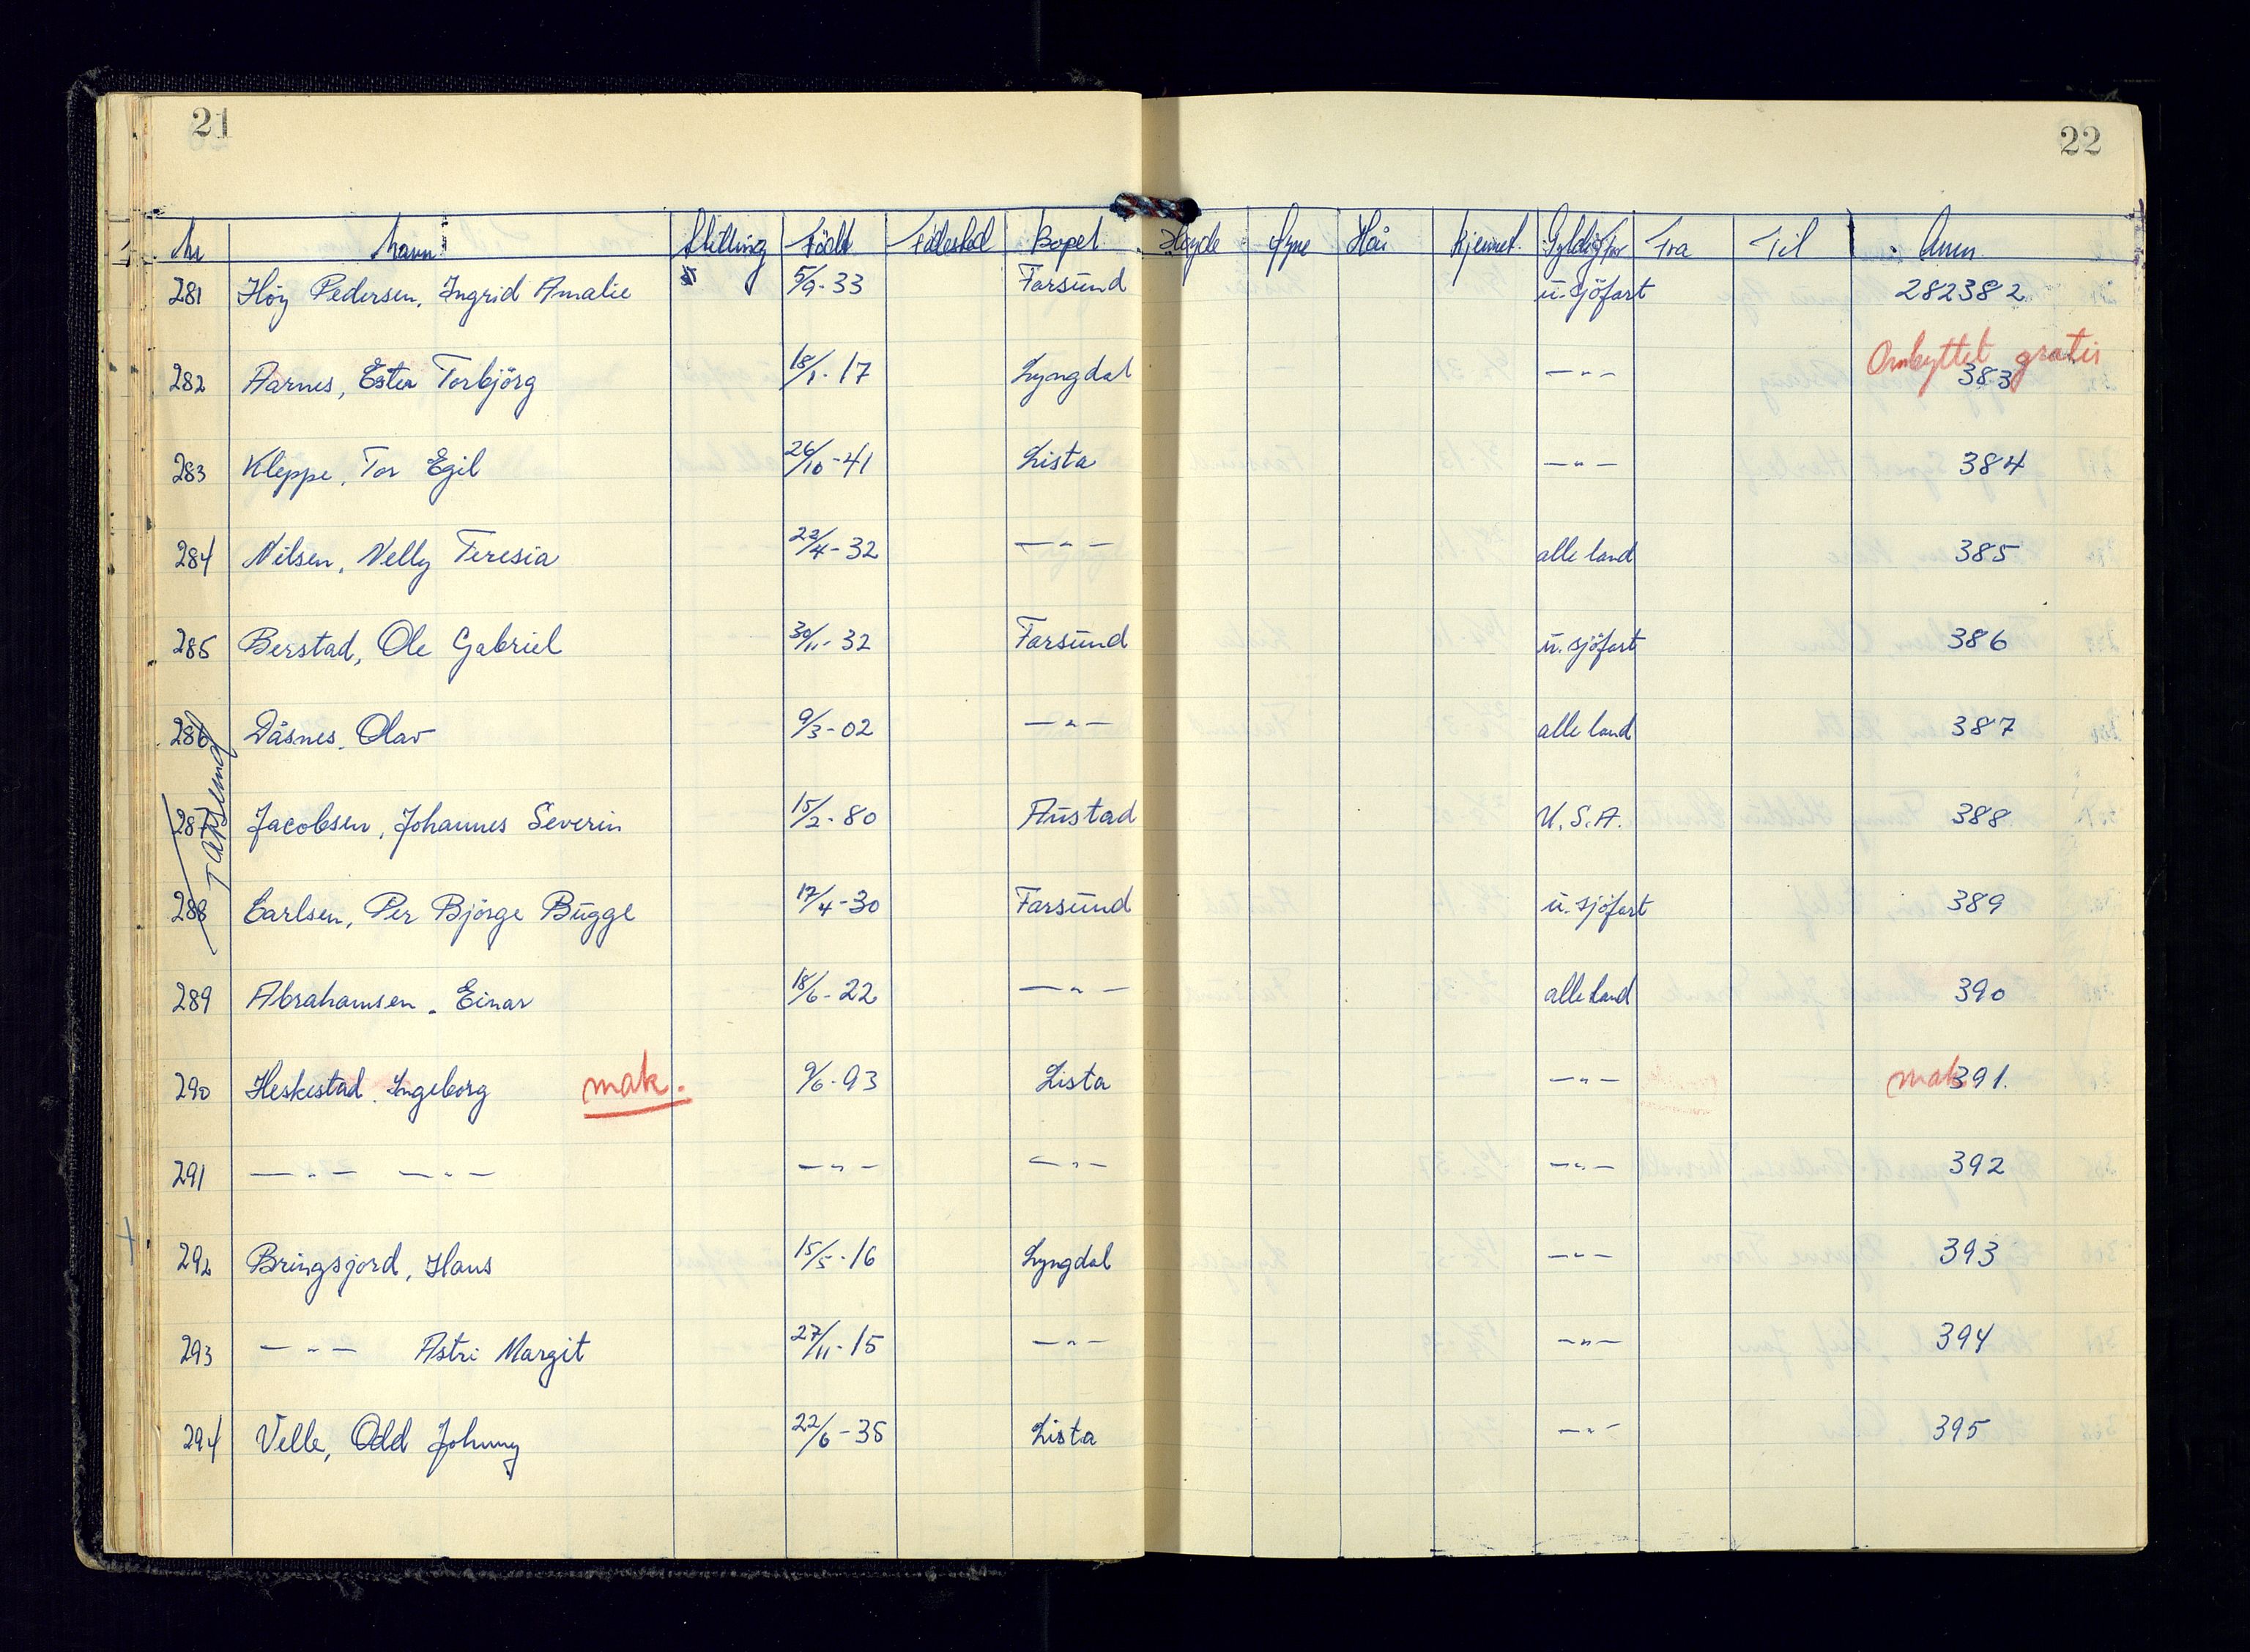 21
22
Nr Navn Stilling Født Fødested Bopel Høyde Øyne Hår Kjennet. Gyldig for Fra Til Anm.
281 Höy Pedersen, Ingrid Amalie 5/9-33 Farsund u. sjöfart 282382
Ombyttet gratis
282 Aarnes, Ester Torbjörg 18/1-17 Lyngdal —"— 383
283 Kleppe, Tor Egil 26/10-41 Lista —"— 384
284 Nilsen, Nelly Teresia 22/4-32 —"— alle land 385
285 Berstad, Ole Gabriel 30/11-32 Farsund u. sjöfart 386
286 Dåsnes, Olav 9/3-02 —"— alle land 387
287 Jacobsen, Johannes Severin 15/2-80 Austad U.S.A. 388
288 Carlsen, Per Björge Bugge 17/4-30 Farsund u. sjöfart 389
289 Abrahamsen, Einar 18/6-22 —"— alle land 390
290 Heskestad, Ingeborg mak. 9/6-93 Lista —"— mak 391.
291 —"— —"— —"— —"— —"— 392
292 Bringsjord, Hans 15/5-16 Lyngdal —"— 393
293 —"— Astri Margit 27/11-15 —"— —"— 394
294 Velle, Odd Johnny 22/6-35 Lista —"— 395